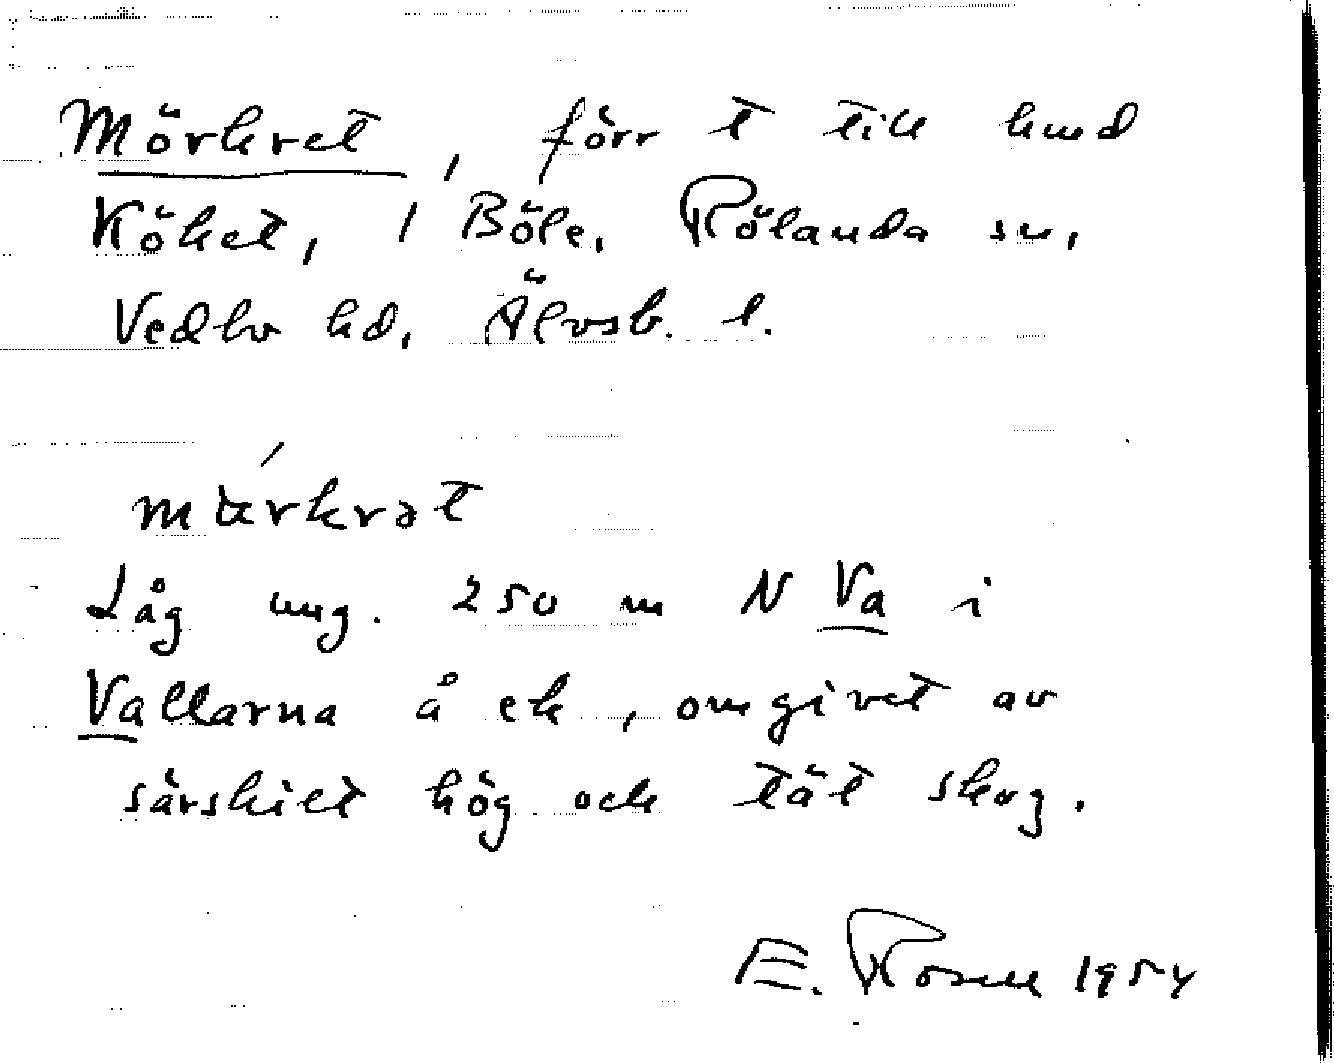 Mörkret, förr t till hmd
Köket, 1 Böle, Rölanda sn,
Vedbo hd, Älvsb. l.
Låg ung. 250 m N Va i
Vallarna å ek, omgivet av
särskilt hög och tät skog.
E. Rosell 1954